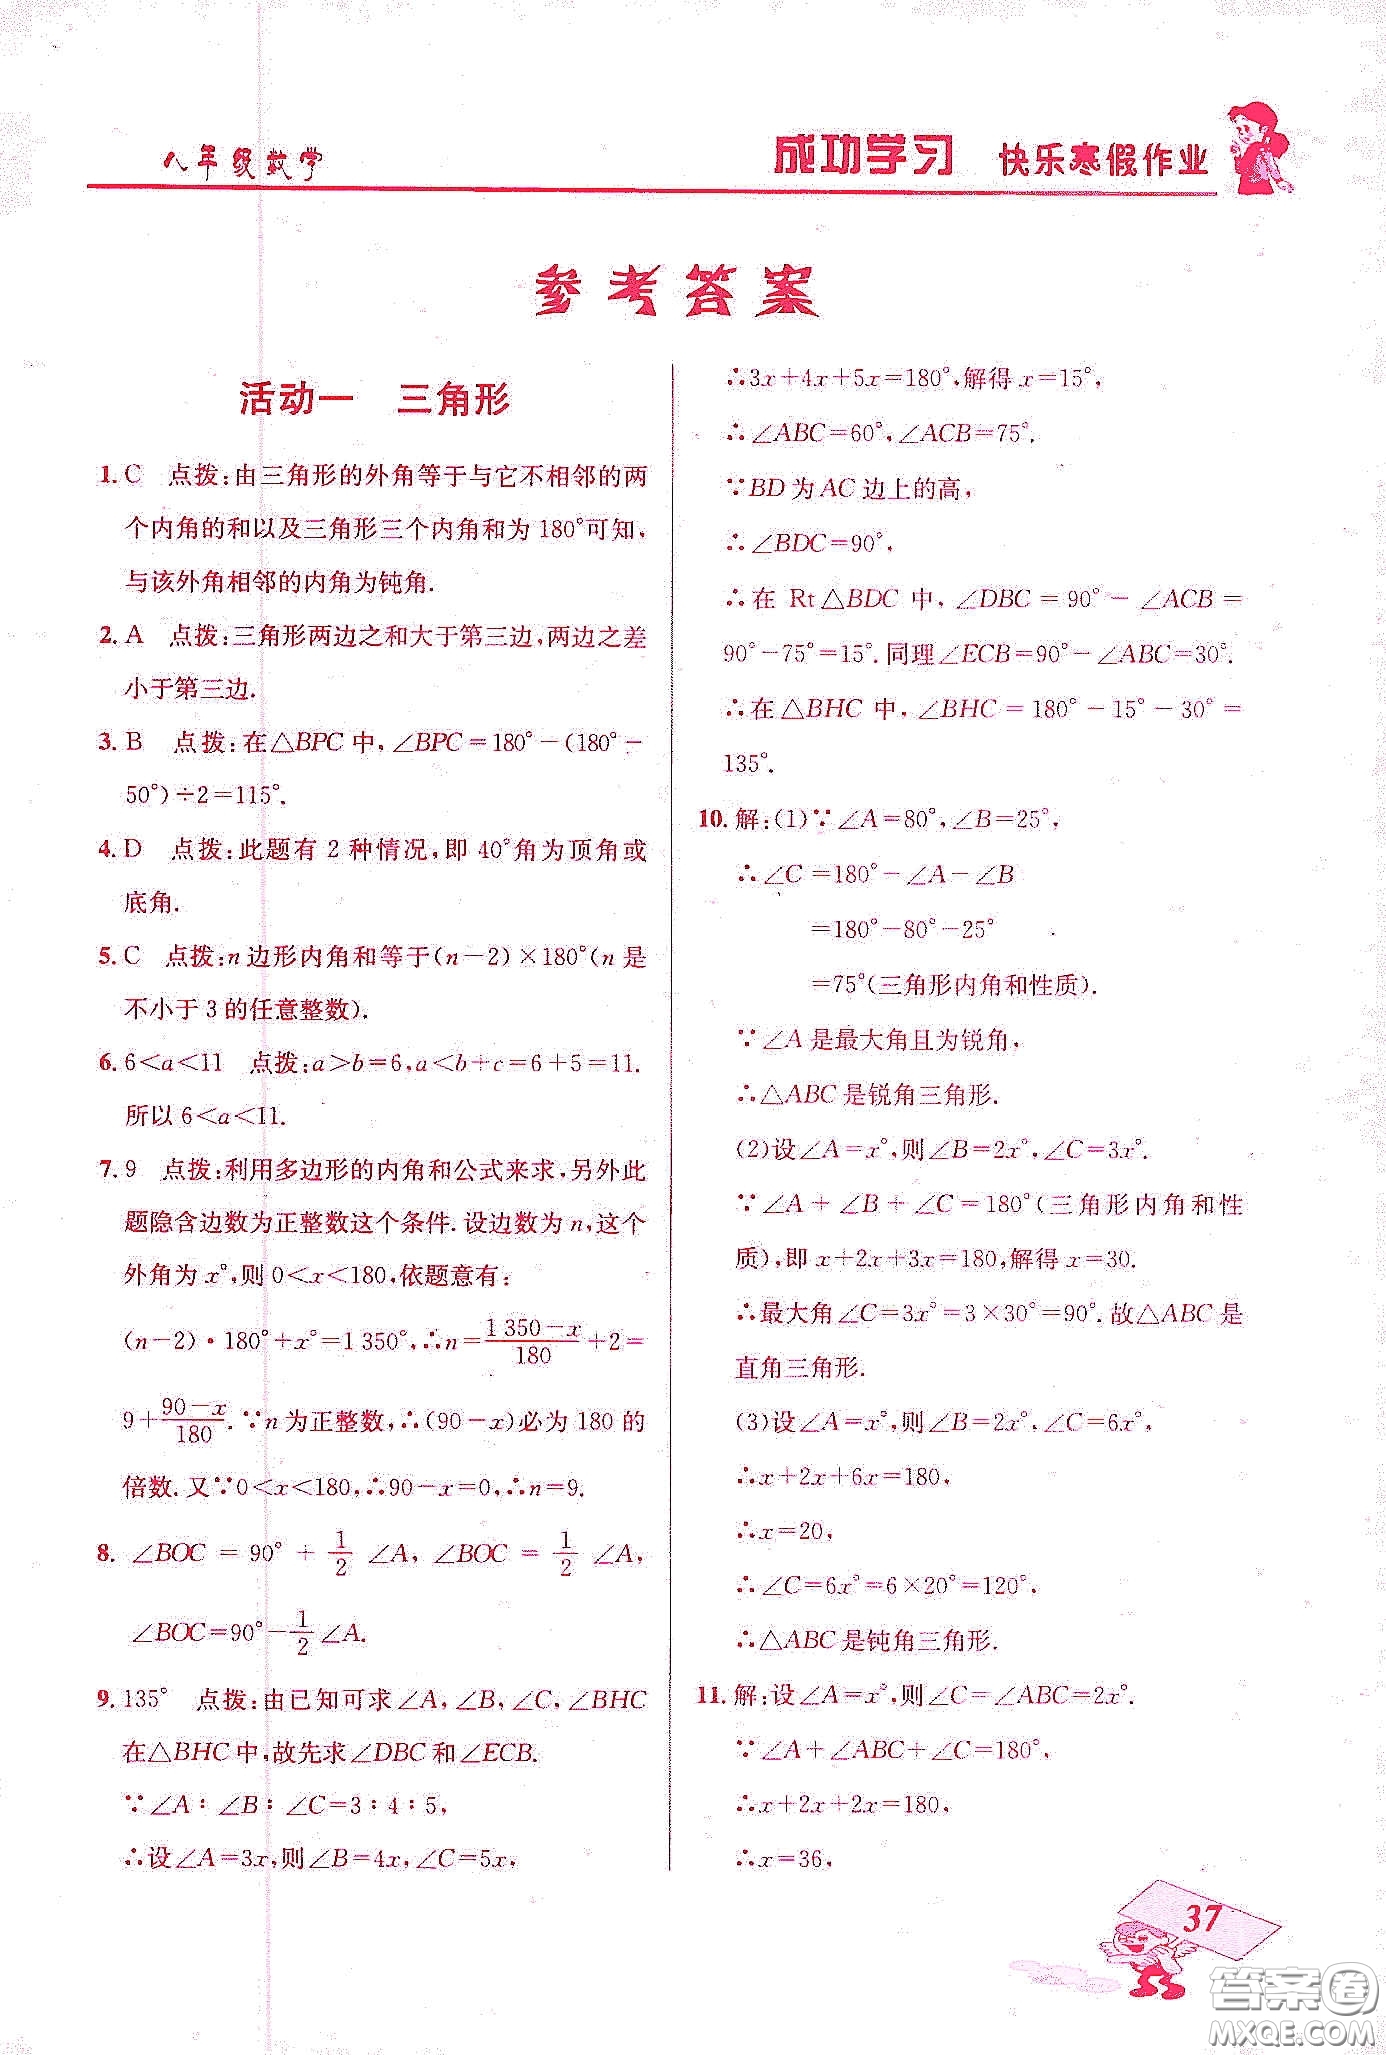 八年级数学
成功学习 快乐寒假作业
参考答案
活动一 三角形
1. C 点拨:由三角形的外角等于与它不相邻的两
个内角的和以及三角形三个内角和为180°可知,
与该外角相邻的内角为钝角.
2. A 点拨:三角形两边之和大于第三边,两边之差
小于第三边.
3. B 点拨:在△BPC中,∠BPC=180°-(180°-
50°)÷2=115°.
4. D 点拨:此题有2种情况,即40°角为顶角或
底角.
5. C 点拨:n边形内角和等于(n-2)×180°(n是
不小于3的任意整数).
6. 6<a<11 点拨:a>b=6,a<b+c=6+5=11.
所以6<a<11.
7. 9 点拨:利用多边形的内角和公式来求,另外此
题隐含边数为正整数这个条件.设边数为n,这个
外角为x°,则0<x<180,依题意有:
(n-2)·180°+x°=1 350°,∴n=(1 350-x)/180+2=
9+(90-x)/180.∵n为正整数,∴(90-x)必为180的
倍数.又∵0<x<180,∴90-x=0,∴n=9.
8. ∠BOC=90°+1/2∠A,∠BOC=1/2∠A,
∠BOC=90°-1/2∠A.
9. 135° 点拨:由已知可求∠A,∠B,∠C,∠BHC
在△BHC中,故先求∠DBC和∠ECB.
∵∠A:∠B:∠C=3:4:5,
∴设∠A=3x,则∠B=4x,∠C=5x,
∴3x+4x+5x=180°,解得x=15°,
∴∠ABC=60°,∠ACB=75°.
∵BD为AC边上的高,
∴∠BDC=90°,
∴在Rt△BDC中,∠DBC=90°-∠ACB=
90°-75°=15°.同理∠ECB=90°-∠ABC=30°.
∴在△BHC中,∠BHC=180°-15°-30°=
135°.
10. 解:(1)∵∠A=80°,∠B=25°,
∴∠C=180°-∠A-∠B
=180°-80°-25°
=75°(三角形内角和性质).
∵∠A是最大角且为锐角,
∴△ABC是锐角三角形.
(2)设∠A=x°,则∠B=2x°,∠C=3x°.
∵∠A+∠B+∠C=180°(三角形内角和性
质),即x+2x+3x=180,解得x=30.
∴最大角∠C=3x°=3×30°=90°.故△ABC是
直角三角形.
(3)设∠A=x°,则∠B=2x°,∠C=6x°,
∴x+2x+6x=180,
∴x=20,
∴∠C=6x°=6×20°=120°,
∴△ABC是钝角三角形.
11. 解:设∠A=x°,则∠C=∠ABC=2x°.
∵∠A+∠ABC+∠C=180°,
∴x+2x+2x=180,
∴x=36,
37
答案卷
MXQE.COM